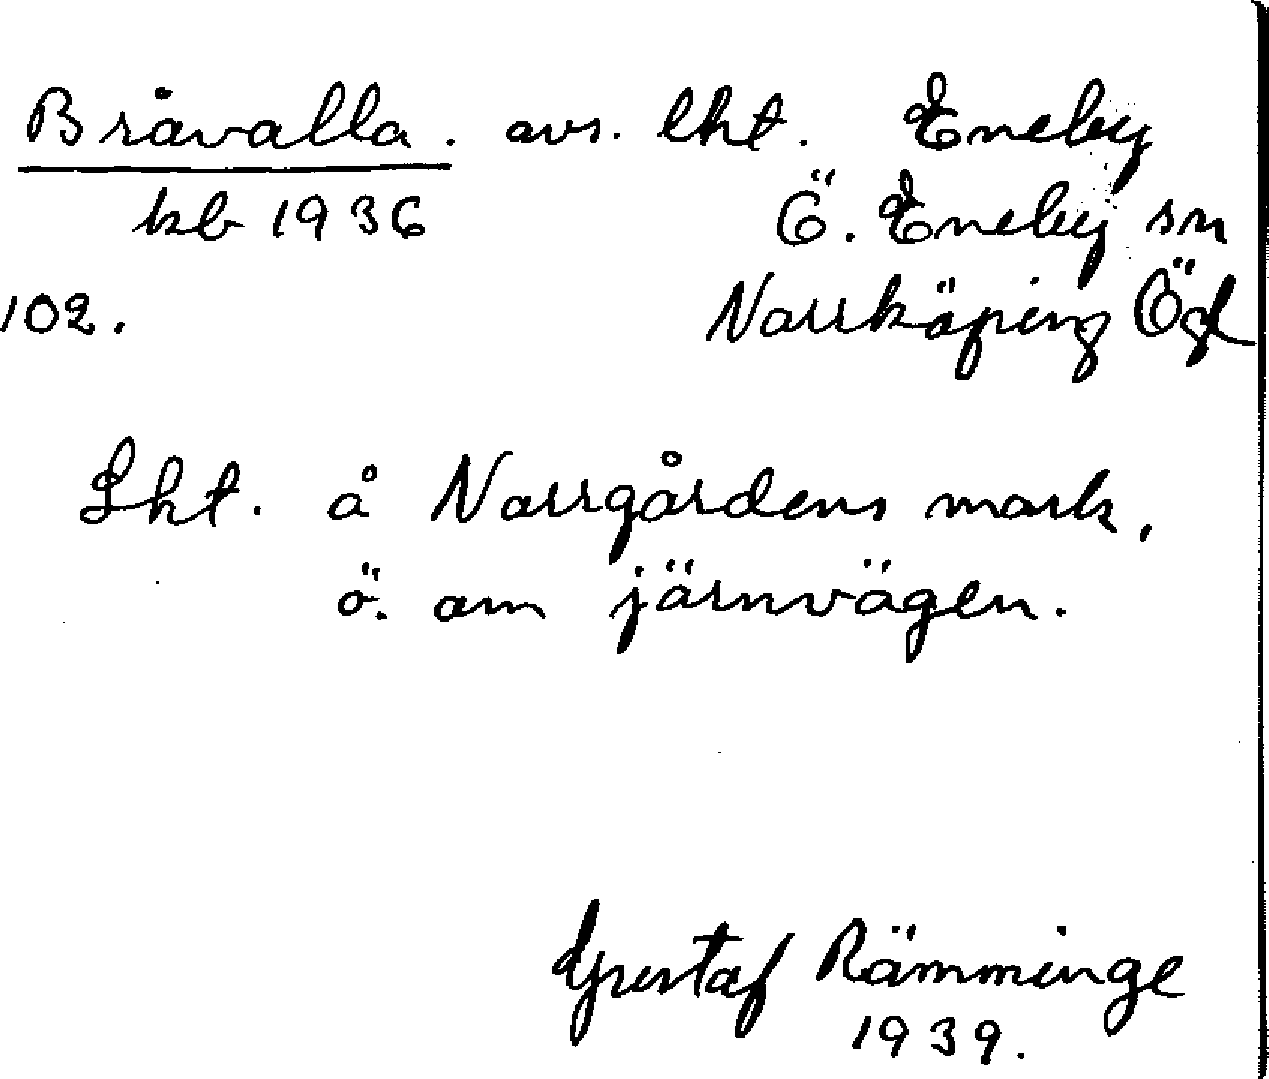 Bråvalla. avs. lht. Eneby
kb 1936 Ö. Eneby sn
102. Norrköping Ögl
Lht. å Norrgårdens mark,
ö. om järnvägen.
Gustaf Rämminge
1939.